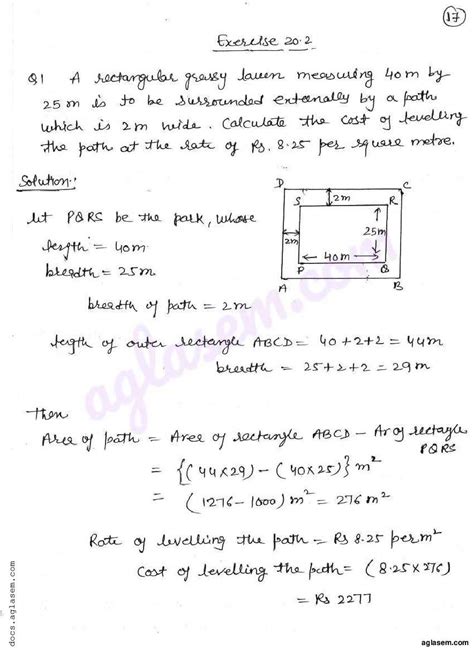 17
Exercise 20.2
Q1 A rectangular grassy lawn measuring 40m by
25m is to be surrounded externally by a path
which is 2m wide. Calculate the cost of levelling
the path at the rate of Rs. 8.25 per square metre.
Solution:
D C
S 2m R
25m
2m
40m
P Q
A B
let PQRS be the park, whose
length = 40m
breadth = 25m
breadth of path = 2m
length of outer rectangle ABCD = 40+2+2 = 44m
breadth = 25+2+2 = 29m
Then
Area of path = Area of rectangle ABCD - Ar of rectangle
PQRS
= {(44×29) - (40×25)} m²
= (1276-1000) m² = 276m²
Rate of levelling the path = Rs 8.25 per m²
Cost of levelling the path = (8.25×276)
= Rs 2277
aglasem.com
docs.aglasem.com
aglasem.com